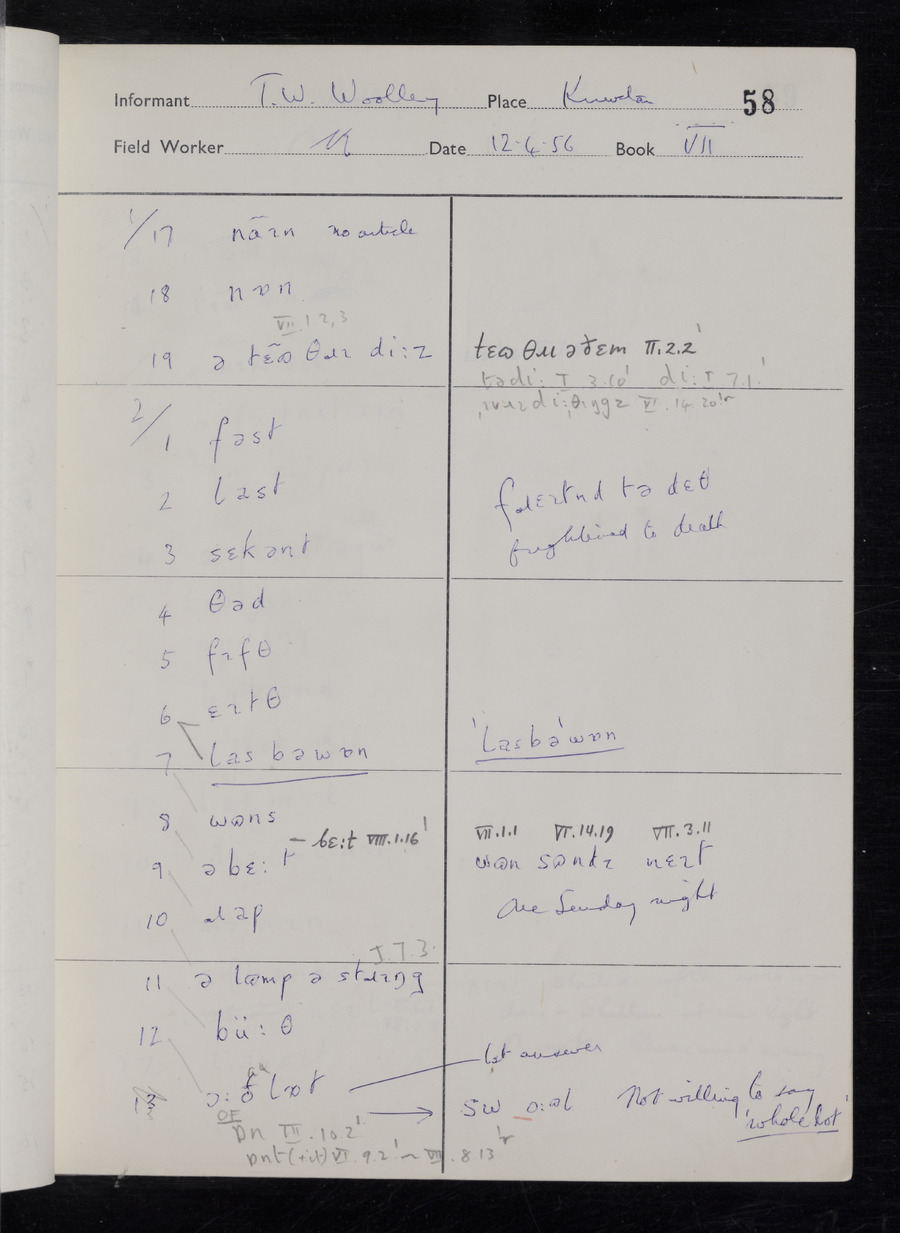 Informant T.W. Woolley Place Kniveton 58
Field Worker Date 12·4·56 Book VII
1/17 nāɪn no article
18 nɒn
VII.1 2,3
19 ə tɛ̄ɷ θɹɪ di:z
tɛɷ θɹɪ əðɛm II.2.2'
tədi: I 3.10' di: I 7.1'
VI.14.20
2/1 fəst
2 last
3 sɛkənt
fɹɛɪtnd tə dɛθ
frightened to death
4 θəd
5 fɪfθ
6 ɛɪtθ
7 las bəwɒn
'lasbə'wɒn
8 wɒns
– bɛ:t VIII.1.16'
9 ə bɛ:t
VII.1.1 VI.14.19 VII.3.11
wɒn sɒndɪ nɛɪt
10 ɹap
one Sunday night
I.7.3.
11 ə lɒmp ə stɹɪŋg
12 bü:θ
1st answer
13 ɔ:ə lɒt
SW ɔ:əl Not willing to say
'whole lot'
ɒn III.10.2'
ɒnt (+it) VI 9.2' ~ VIII.8 13